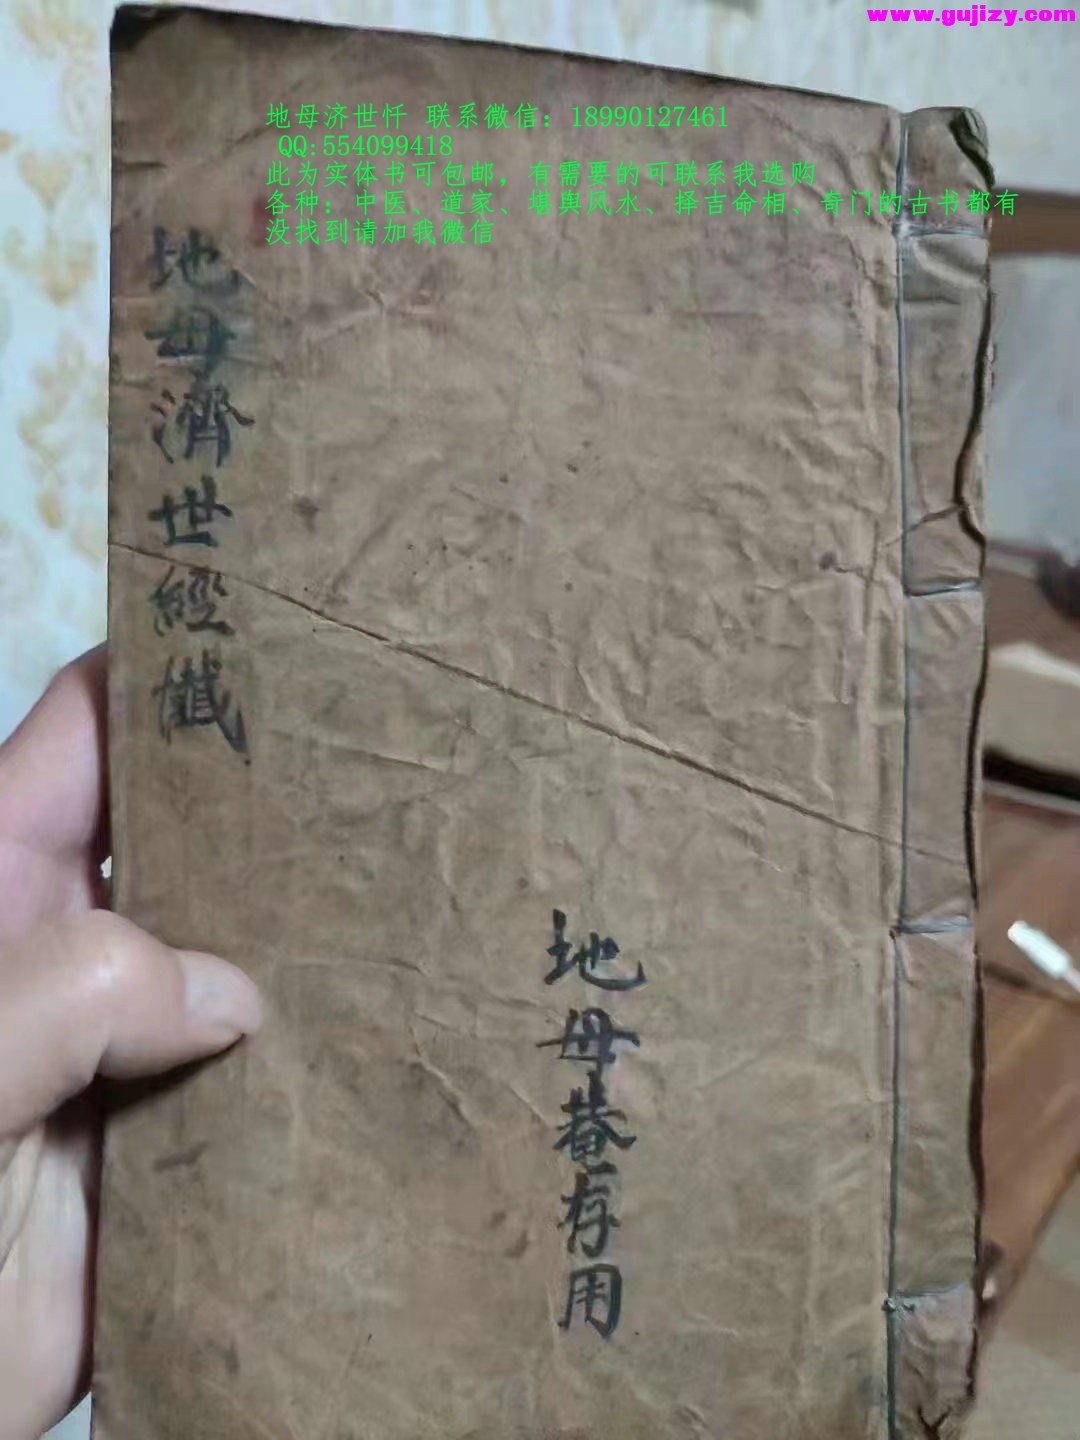 www.gujizy.com
地母济世忏 联系微信：18990127461
QQ:554099418
此为实体书可包邮，有需要的可联系我选购
各种：中医、道家、堪舆风水、择吉命相、奇门的古书都有
没找到请加我微信
地母濟世經懺
地母菴存用